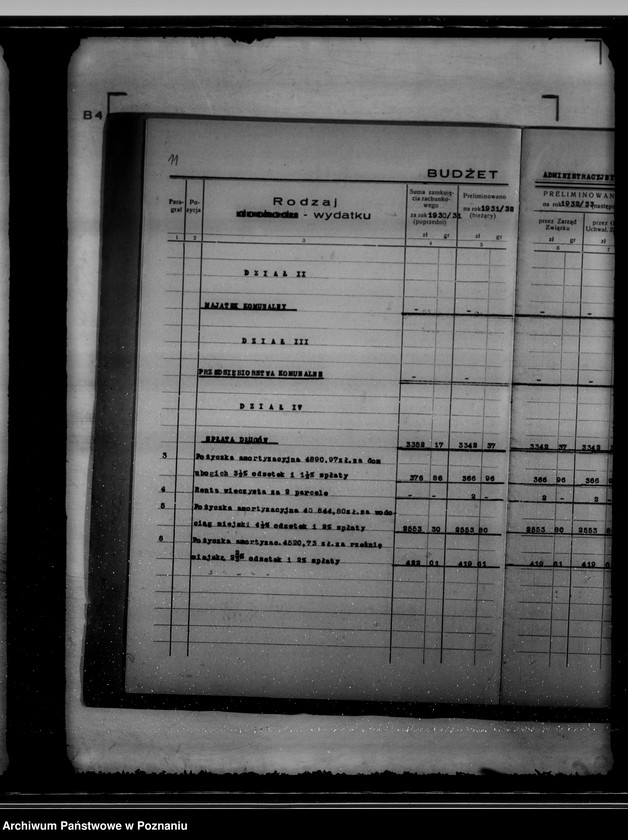 B4
11
BUDŻET
ADMINISTRACYJNY
Para-
graf
Po-
zycja
Rodzaj
dochodu - wydatku
Suma zamknię-
cia rachunko-
wego
za rok 1930/31
(poprzedni)
Preliminowano
na rok 1931/32
(bieżący)
PRELIMINOWAN
na rok 1932/33 następ
przez Zarząd
Związku
przez
Uchwal.
zł gr zł gr zł gr zł
1 2 3 4 5 6 7
DZIAŁ II
MAJĄTEK KOMUNALNY - - - -
DZIAŁ III
PRZEDSIĘBIORSTWA KOMUNALNE - - - -
DZIAŁ IV
SPŁATA DŁUGÓW 3352 17 3342 37 3342 37 3342
3 Pożyczka amortyzacyjna 4890,97zł.za dom
ubogich 3½% odsetek i 1½% spłaty 376 86 366 96 366 96 366
4 Renta wieczysta za 2 parcele - - 2 - 2 - 2 -
5 Pożyczka amortyzacyjna 40.844,80zł.za wodo-
ciąg miejski 4½% odsetek i 2% spłaty 2553 30 2553 80 2553 80 2553
6 Pożyczka amortyzac.4520,73 zł.za rzeźnię
miejską % odsetek i 2% spłaty 422 01 419 61 419 61 419
Archiwum Państwowe w Poznaniu